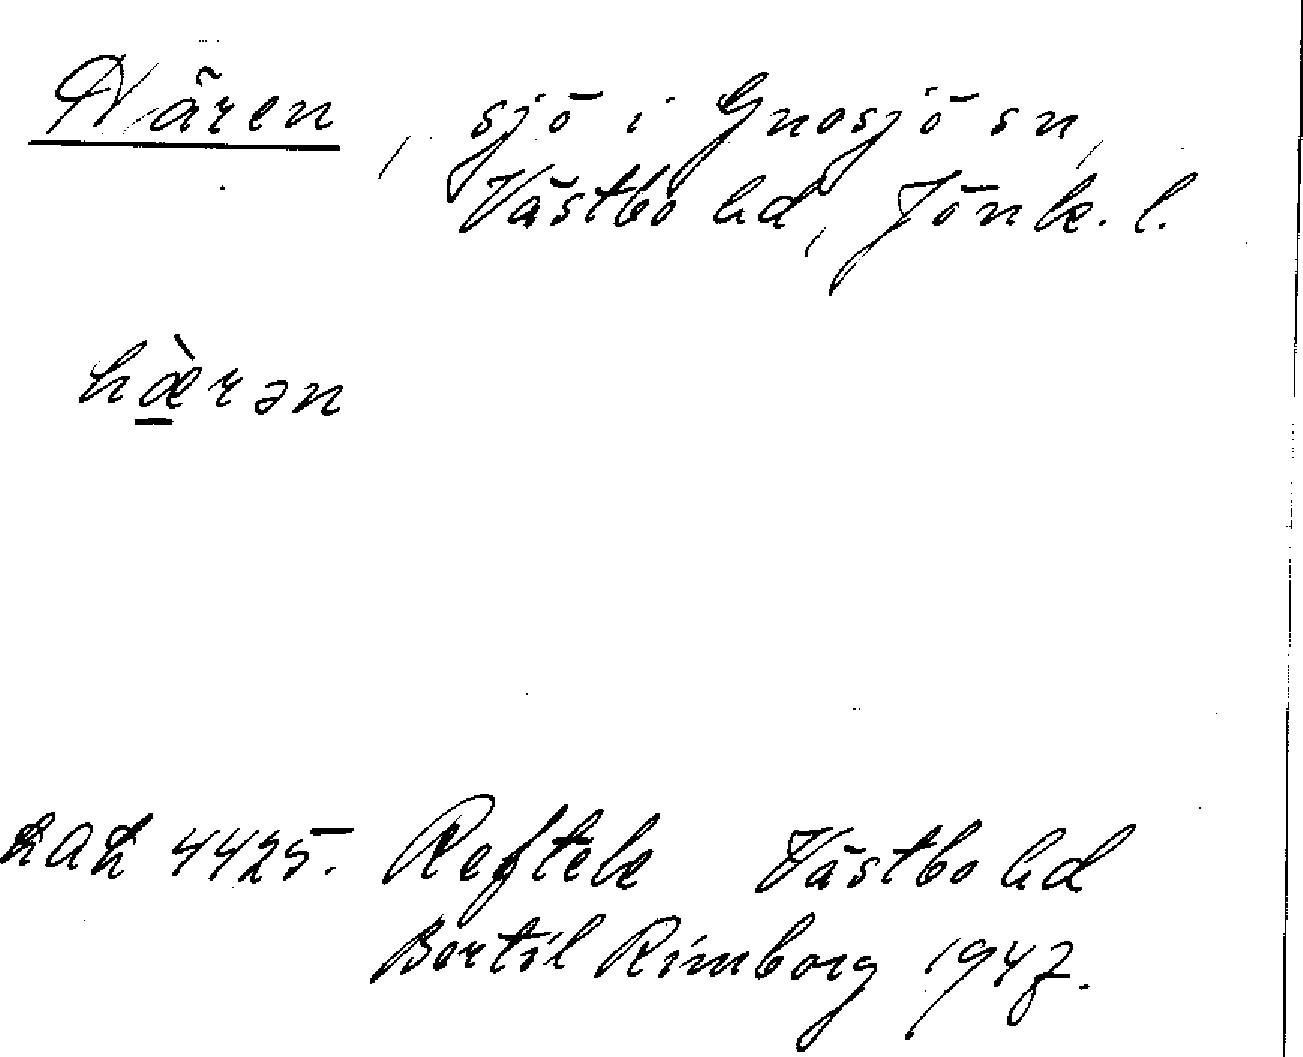 Hären, sjö i Gnosjö sn,
Västbo hd, Jönk. l.
hæ̀rən
4425. Reftele Västbo hd
Bertil Rimborg 1947.